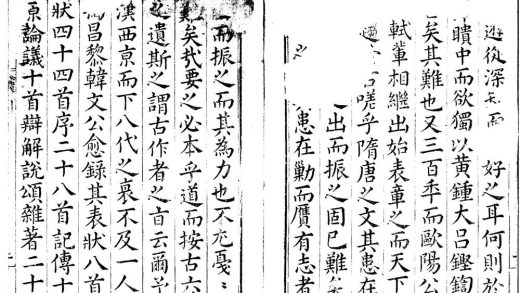 從深而 好之耳何則於
聵中而欲獨以黄鍾大吕鏗鍧
矣其難也又三百年而歐陽公
軾軰相繼出始表章之而天下
嗟乎隋唐之文其患在
出而振之固已難矣
之 患在勦而贋有志者
而振之而其為力也不尤戞
矣㢤要之必本乎道而按古六
之遺斯之謂古作者之言云爾
漢西京而下八代之衰不及一人
昌黎韓文公愈錄其表狀八首
狀四十四首序二十八首記傳十
原論議十首辯解說頌雜著二十